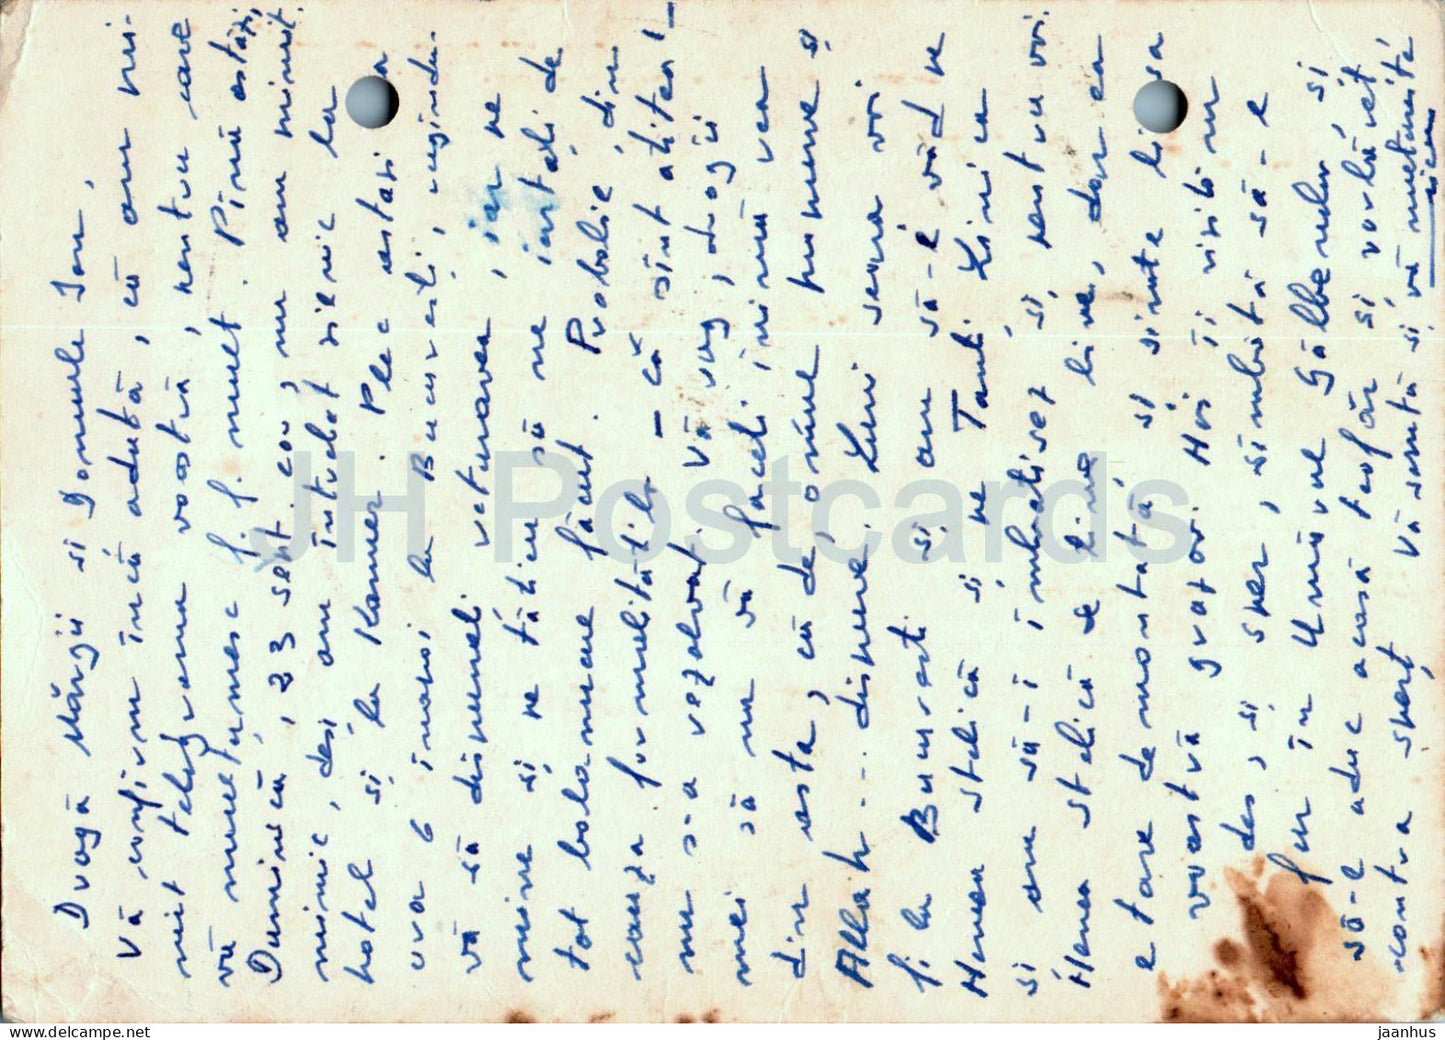 Dragă Mărgii si Domnule Ion,
Vă confirm încă odată, că am pri-
mit telegrama vostră, pentru care
vă mulțumesc f. f. mult. Pînă astăzi,
Duminică, 23 sept. a.c., nu am primit
nimic, deși am întrebat zilnic la
hotel și la Kamer. Plec astăzi la
ora 6 înapoi la București, rugîndu-
vă să dispuneți returarea, iar pe
mine și pe Tăticu să ne iertați de
tot balamucul făcut. Probabil, din
cauza formalităților - că sînt atîtea! -
nu s-a rezolvat. Vă rog, dragii
mei să nu vă faceți inimă rea
din asta, că de, omul pune și
Allah... dispune. Luni seara voi
fi la București și am să-l văd pe
Henea Stelică și pe Tanti Linica
și am să-i îmbrățișez și pentru voi.
Henea Stelică e bine, dar ea
e tare demontată, și simte lipsa
voastră grozav. Noi îi vizităm
des, și sper, sîmbătă să-l
fur în Umărul Galbenului, și
să-l aduc acasă teafăr și vorbăreț
contra sperț Vă sărută și vă
JH Postcards
delcampe.net
jaanhus